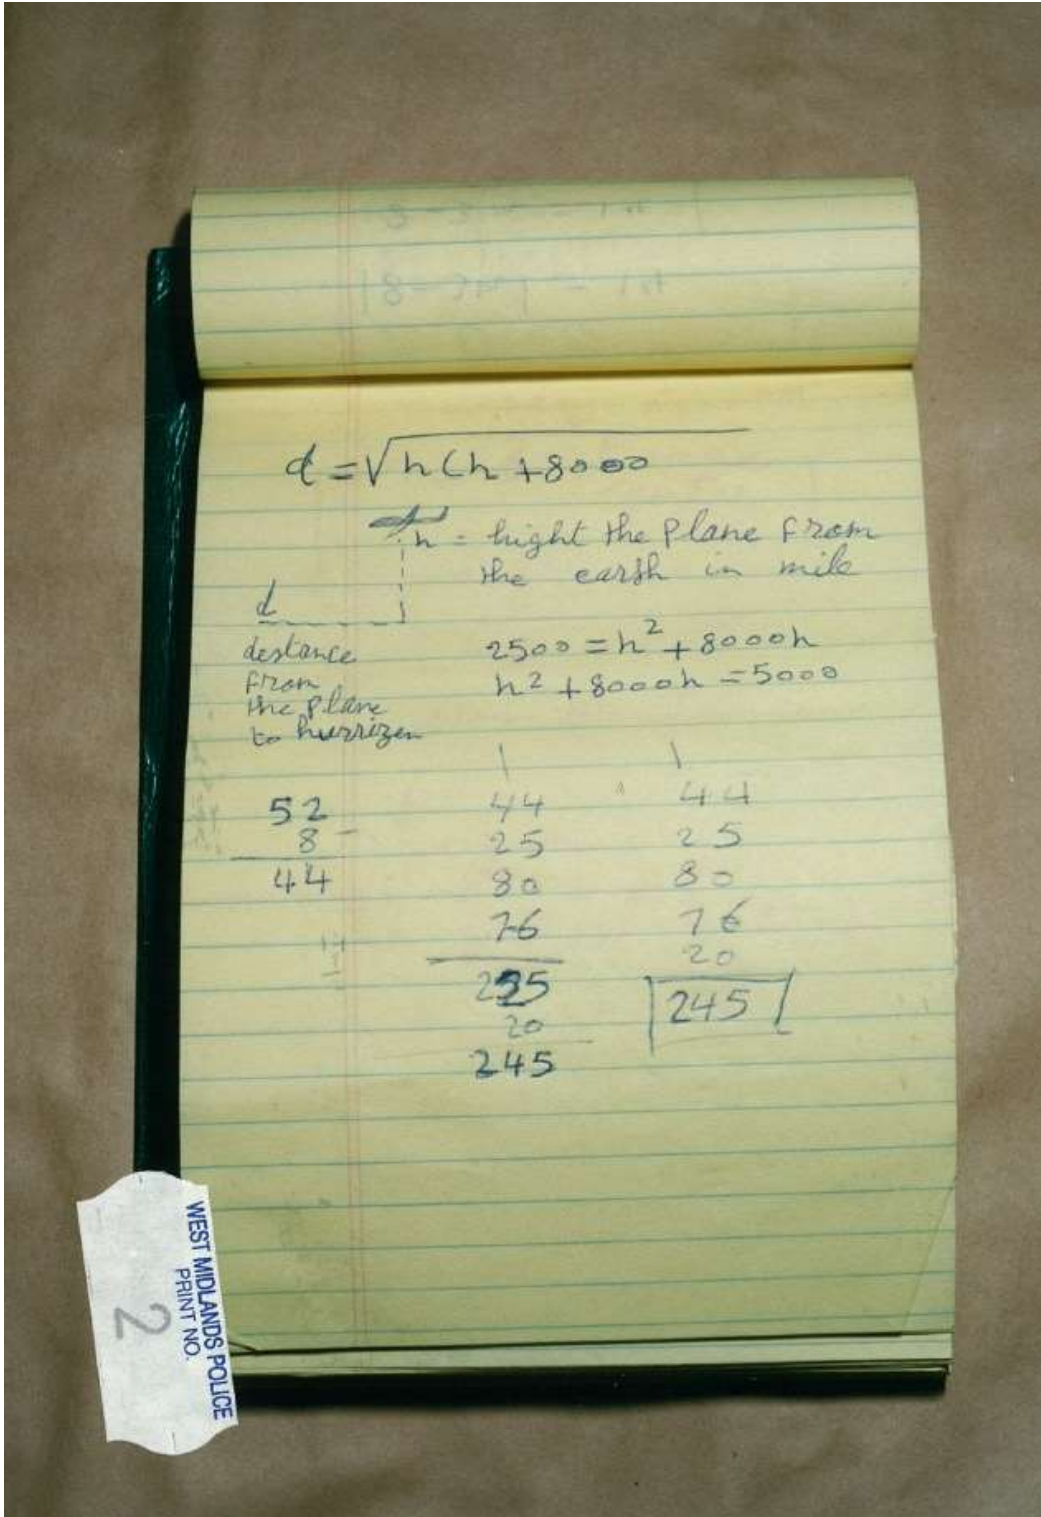 d = √h(h + 8000
h = hight the plane from
the earth in mile
d
destance
from
the plane
to hurrizen
2500 = h² + 8000h
h² + 8000h = 5000
52
8 -
44
1
44
25
80
76
225
20
245
1
44
25
80
76
20
245
WEST MIDLANDS POLICE
PRINT NO.
2